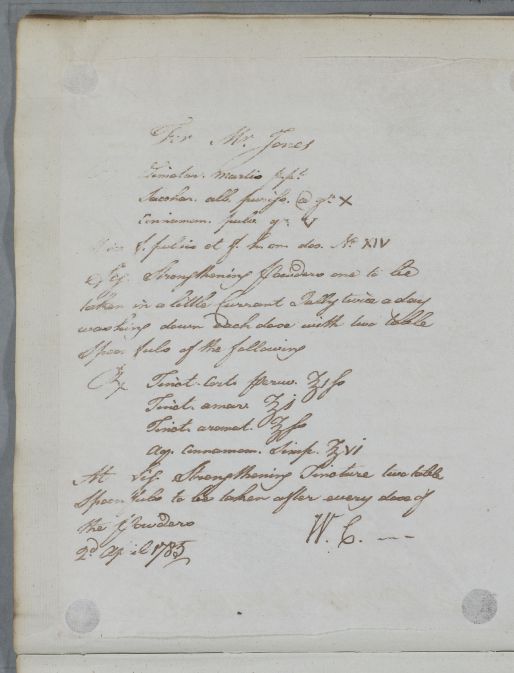 For Mr. Jones
Limatur. Martis ppt.
Sacchar. alb. puriss. @ gr. X
Cinnamom. pulv. gr. V
f. pulvis et f. h. om. dos. No. XIV
Sig. Strengthening Powders one to be
taken in a little Currant Jelly twice a day
washing down each dose with two table
Spoon fuls of the following
Rx Tinct. Cort. peruv. ℥iſs
Tinct. amar. ℥j
Tinct. aromat. ℥ſs
Aq. Cinnamom. Simp. ℥vi
M Sig. Strengthening Tincture two table
Spoon fuls to be taken after every dose of
the Powders
W. C.
2d. April 1785